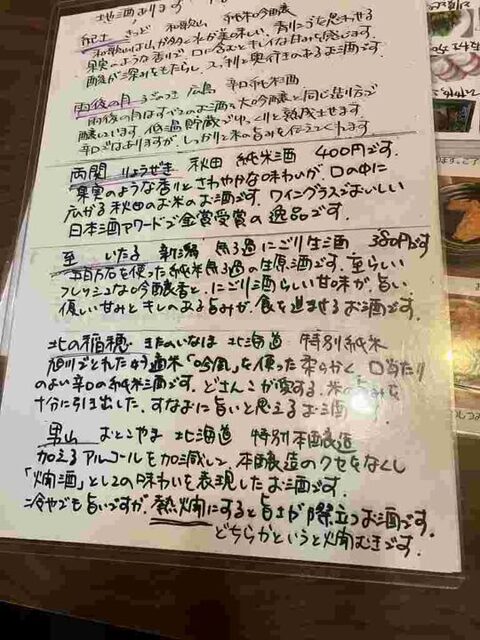 地酒あります
紀土 きっど 和歌山 純米吟醸
果実のような香りで口に含むとキレイな甘みを感じます。
酸が深みをもたらし、スッキリと奥行きのあるお酒です。
雨後の月 うごのつき 広島 辛口純米酒
雨後の月はすべてのお酒を大吟醸と同じ造り方で
醸しています 低温貯蔵でゆっくりと熟成させます
辛口ではありますが、しっかりと米の旨みを伝えてくれます
両関 りょうぜき 秋田 純米酒 400円です。
「果実のような香りとさわやかな味わいが、口の中に
広がる秋田のお米のお酒です。ワイングラスでおいしい
日本酒アワードで金賞受賞の逸品です。
至 いたる 新潟 無ろ過にごり生酒. 380円です
五百万石を使った純米無ろ過の生原酒です。至らしい
フレッシュな吟醸香と、にごり酒らしい甘味が、旨い
優しい甘みとキレのある旨みが、食を進ませるお酒です。
北の稲穂 きたのいなほ 北海道 特別純米
旭川でとれた 酒米「吟風」を使った柔らかく 口当たり
のよい辛口の純米酒です。どさんこが愛する、米の を
十分に引き出した、すなおに旨いと思えるお酒
男山 おとこやま 北海道 特別本醸造
加えるアルコールを加減して 本醸造のクセをなくし
「燗酒」としての味わいを表現したお酒です。
冷やでも旨いですが、熱燗にすると旨さが際立つお酒です。
どちらかというと燗むきです。